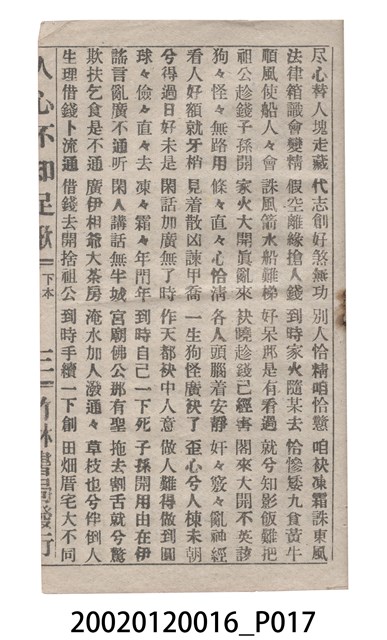 尽心替人塊走藏 代志創好煞無功 別人恰精咱恰戇 咱袂凍霜誅東風
法律箱識會變精 假空離緣搶人錢 到時家火隨某去 恰慘矮九食黃牛
順風使船人々會 誅風箭水船難樑 好呆那是有看過 就兮知影飯難把
祖公趁錢子孫開 家火大開眞亂來 袂曉趁錢已經害 閣來大開不英該
狗々怪々無路用 條々直々心恰清 各人頭腦着安靜 奸々竅々亂神經
看人好額就牙梢 見着散凶諫甲喬 一生狗怪廣袂了 歪心兮人棟未朝
兮得過日好未是 閑話加廣無了時 作天都袂中人意 做人難得做到圓
球々儉々直々去 凍々霜々年門年 到時自己一下死 子孫開用由在伊
謠言亂廣不通听 閑人講話無半城 宮廟佛公郡有聖 拖去割舌就兮驚
欺扶乞食是不通 廣伊相爺大茶房 淹水加人潑通々 草枝也兮伴倒人
生理借錢卜流通 借錢去開捨祖公 到時手續一下創 田畑厝宅大不同
人心不知足歌 下本 三 竹林書局發行
20020120016_P017